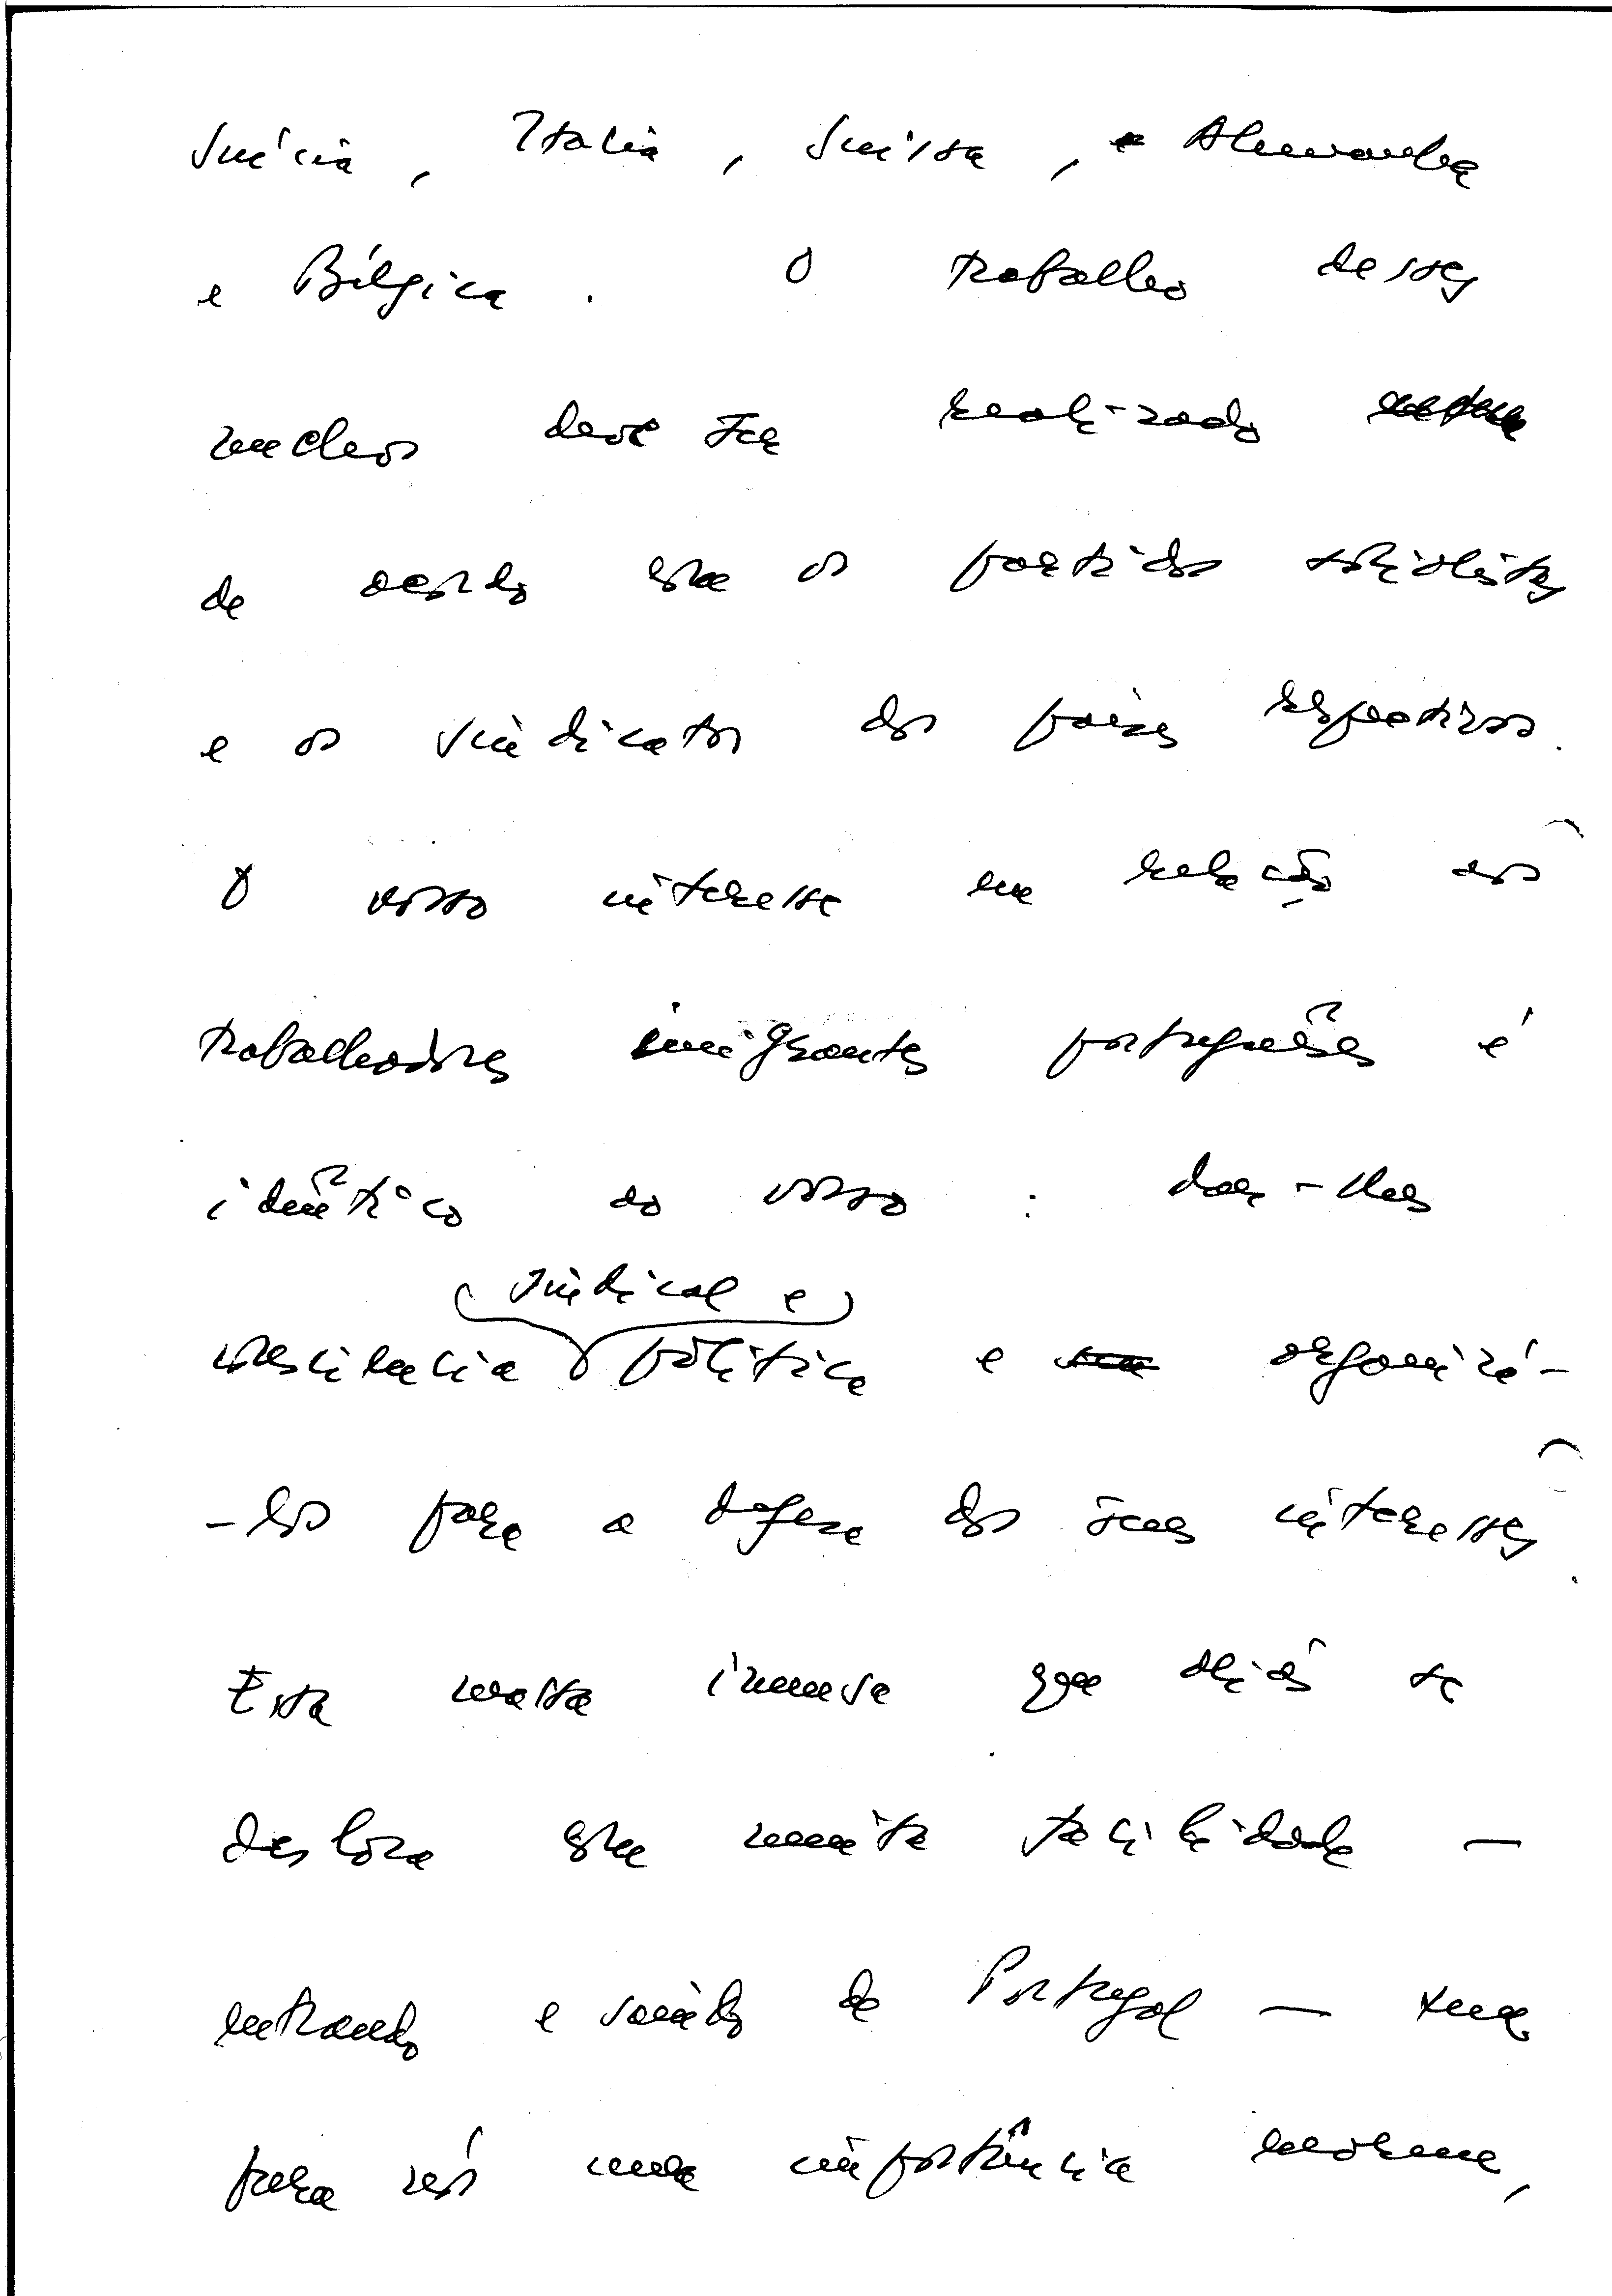 Suécia, Italia, Suíssa, Alemanha
e Bélgica. O trabalho desses
nucleos deve ser realizado
de acordo com os partidos socialistas
e os sindicatos dos países respectivos.
O vosso interesse em relação aos
trabalhadores imigrantes portugueses é
idêntico ao vosso: dar-lhes
sindical e
consciencia política e organizá-
-los para a defesa dos seus interesses.
Esta massa imensa que aliás se
desloca com muita facilidade —
entrando e saindo de Portugal — tem
para nós uma importância enorme,